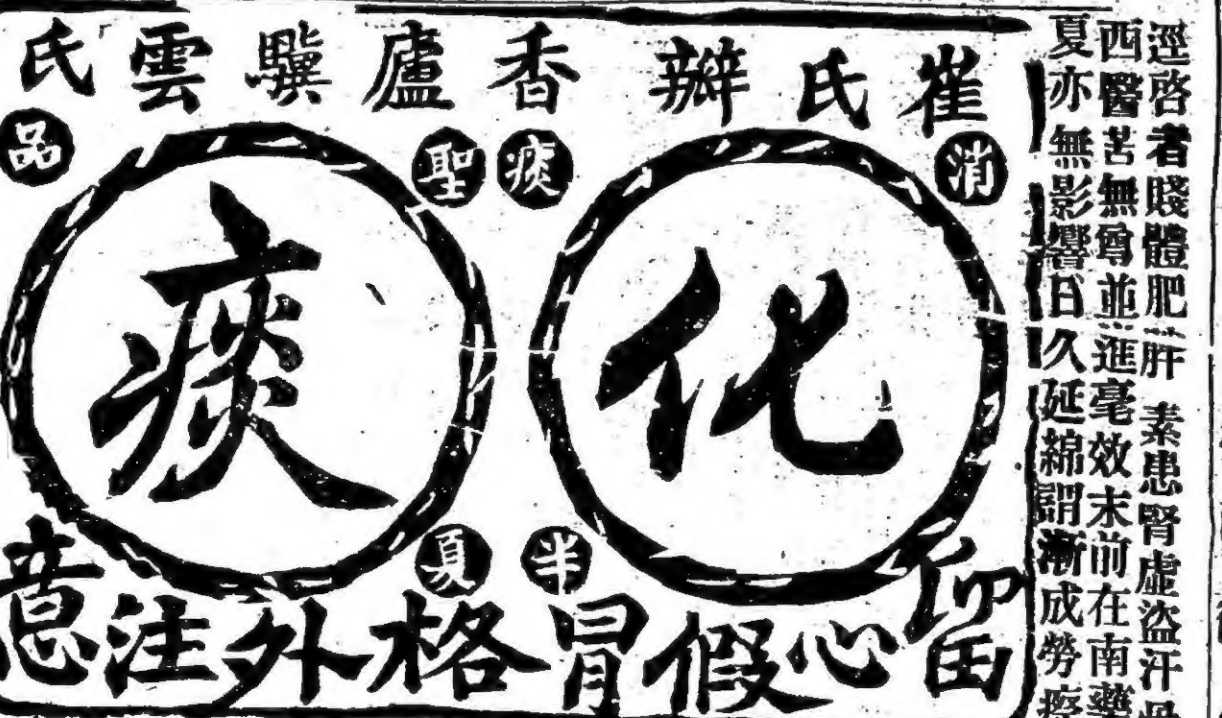 逕啓者賤體肥胖素患腎虛盜汗
西醫苦無並進毫效末前在南藥
夏亦無影響日久延綿謂漸成勞瘵
崔氏瓣香廬驥雲氏
消痰聖品
化痰
半夏
留心假冒格外注意